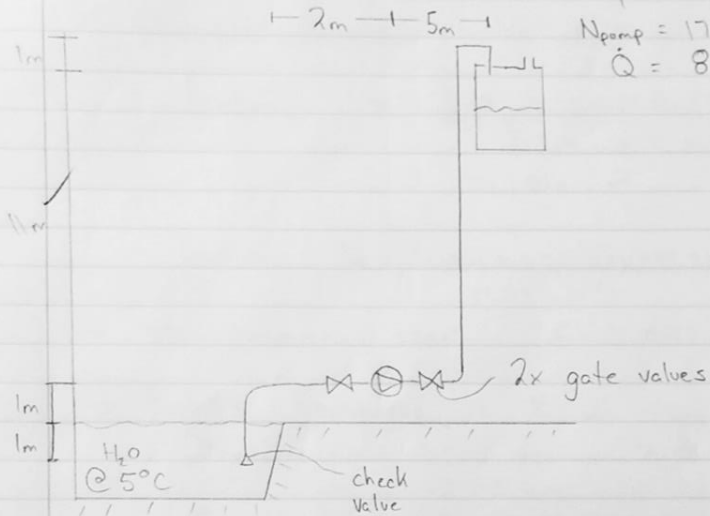 2m 5m
Npomp = 17
Q̇ = 8
1m
11m
1m
1m
H₂O
@ 5°C
2x gate values
check
value